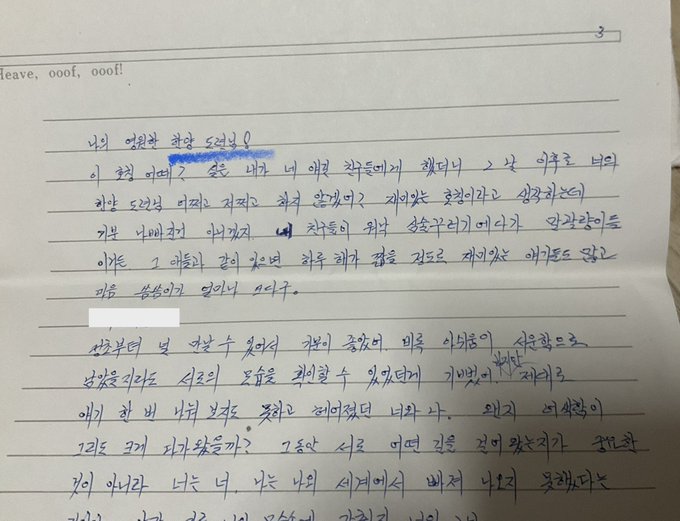 3
Heave, ooof, ooof!
나의 영원한 한양 도련님!
이 호칭 어때? 실은 내가 네 얘길 친구들에게 했더니 그 날 이후로 너의
한양 도련님 어쩌고 저쩌고 하지 않겠어? 재미있는 호칭이라고 생각하는데
기분 나빠진건 아니겠지 친구들이 워낙 심술꾸러기에다가 말괄량이들
이거든. 그 애들과 같이 있으면 하루 해가 짧을 정도로 재미있는 얘기들도 많고
마음 씀씀이가 얼마나 크다구.
정초부터 널 만날 수 있어서 기분이 좋았어. 비록 아쉬움이 서운함으로
남았을지라도 서로의 모습을 확인할 수 있었던게 기뻤어. 제대로
얘기 한 번 나눠 보지도 못하고 헤어졌던 너와 나. 왠지
그리도 크게 다가왔을까? 그동안 서로 어떤 길을 걸어 왔는지가 궁금한
것이 아니라 너는 너. 나는 나의 세계에서 빠져 나오지 못했다는